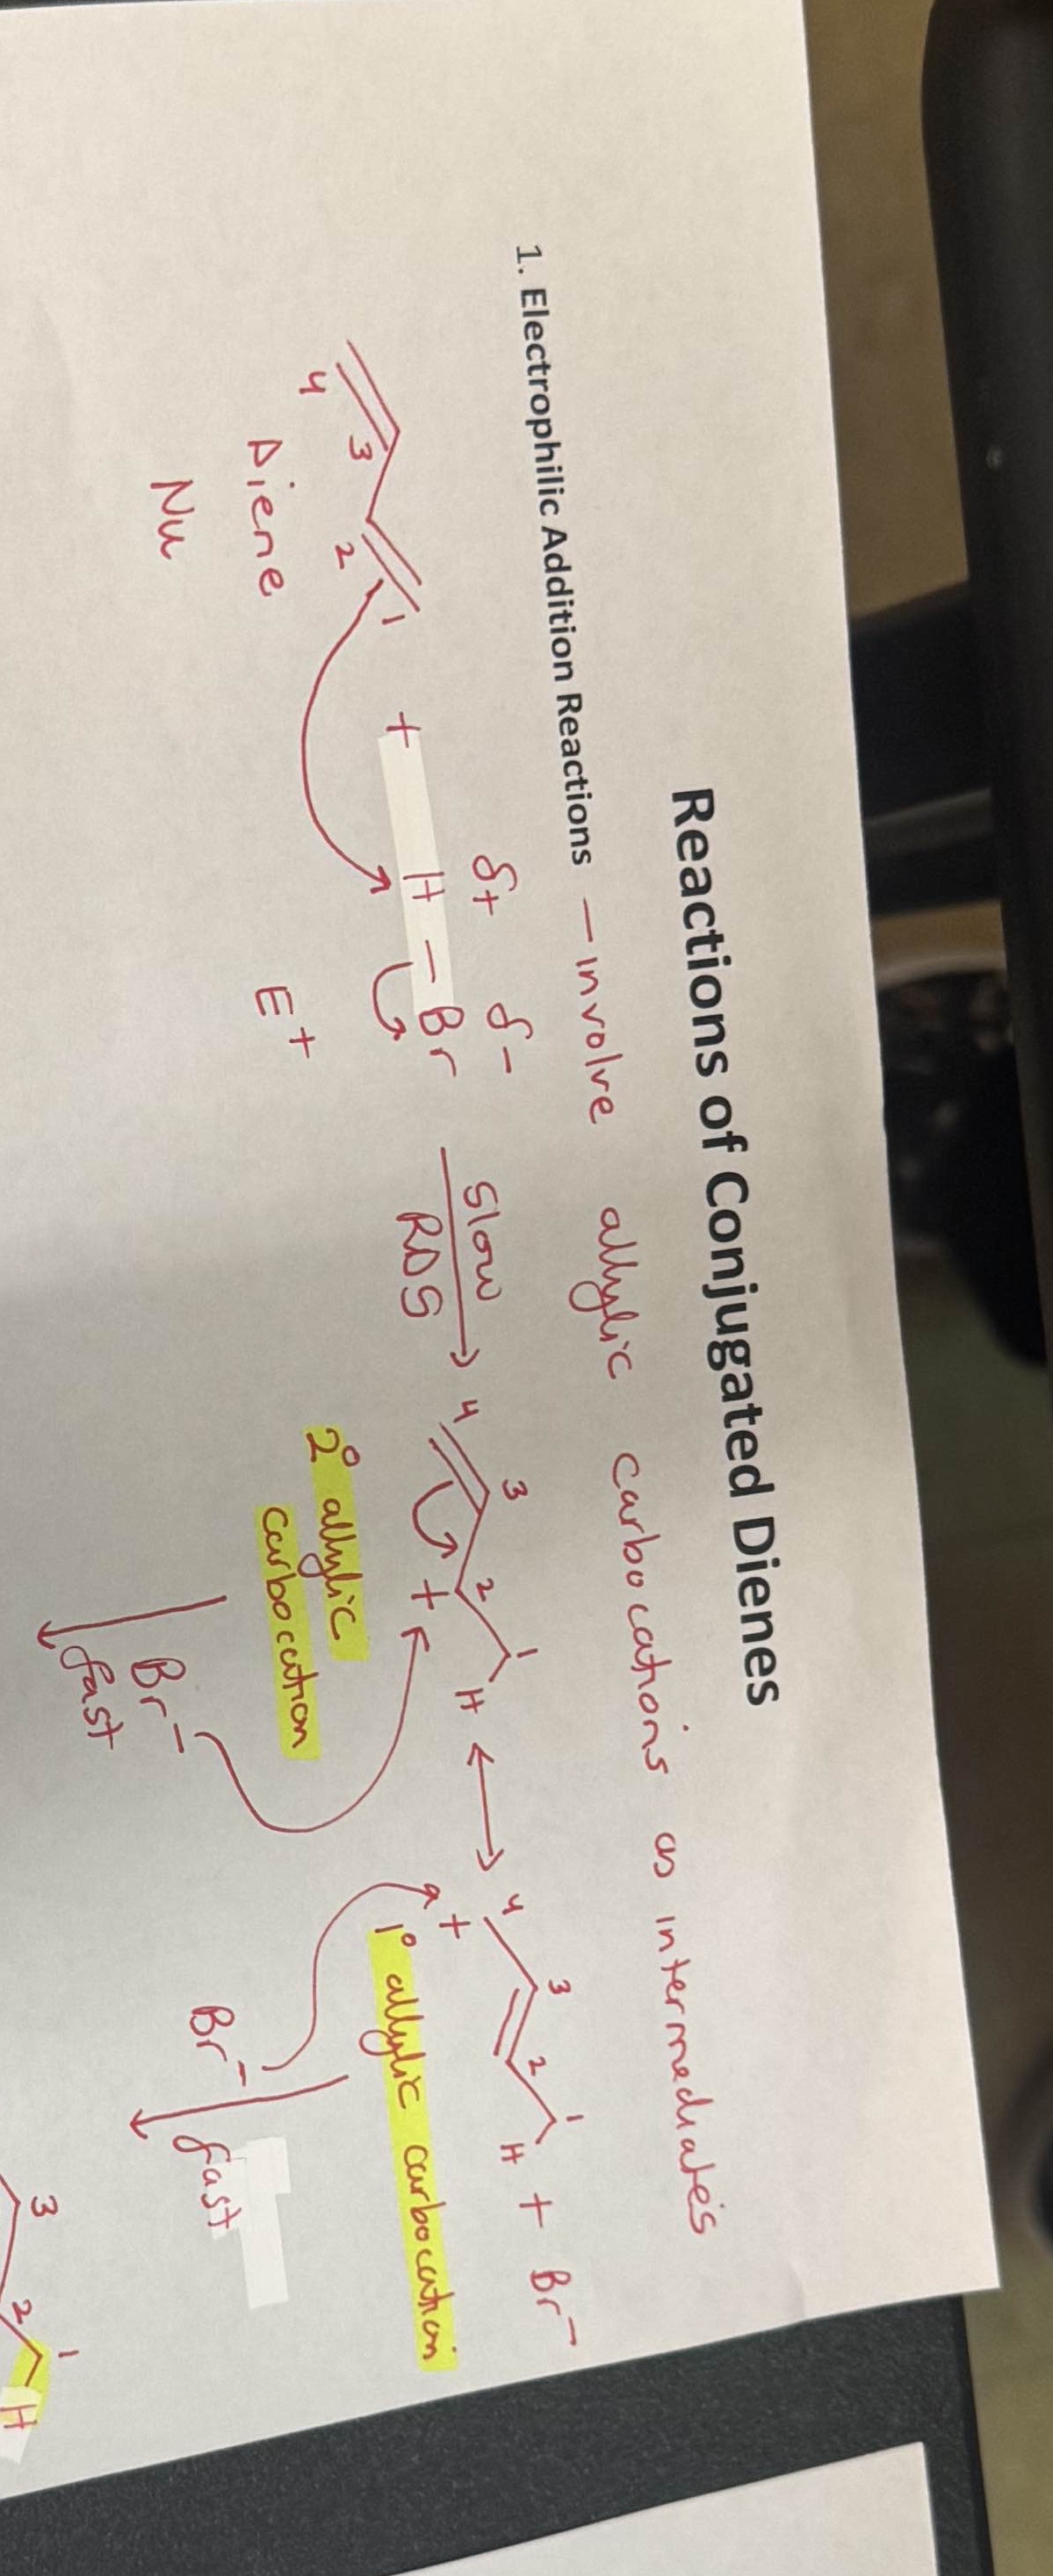 Reactions of Conjugated Dienes
1. Electrophilic Addition Reactions – involve allylic carbocations as intermediates
δ+ δ-
4 3 2 1 + H - Br
slow
RDS
4 3 2 + 1 H ↔ 4 + 3 2 1 H + Br-
Diene
Nu
E+
2° allylic
carbocation
1° allylic carbocation
Br-
fast
Br-
fast
3 2 1 H